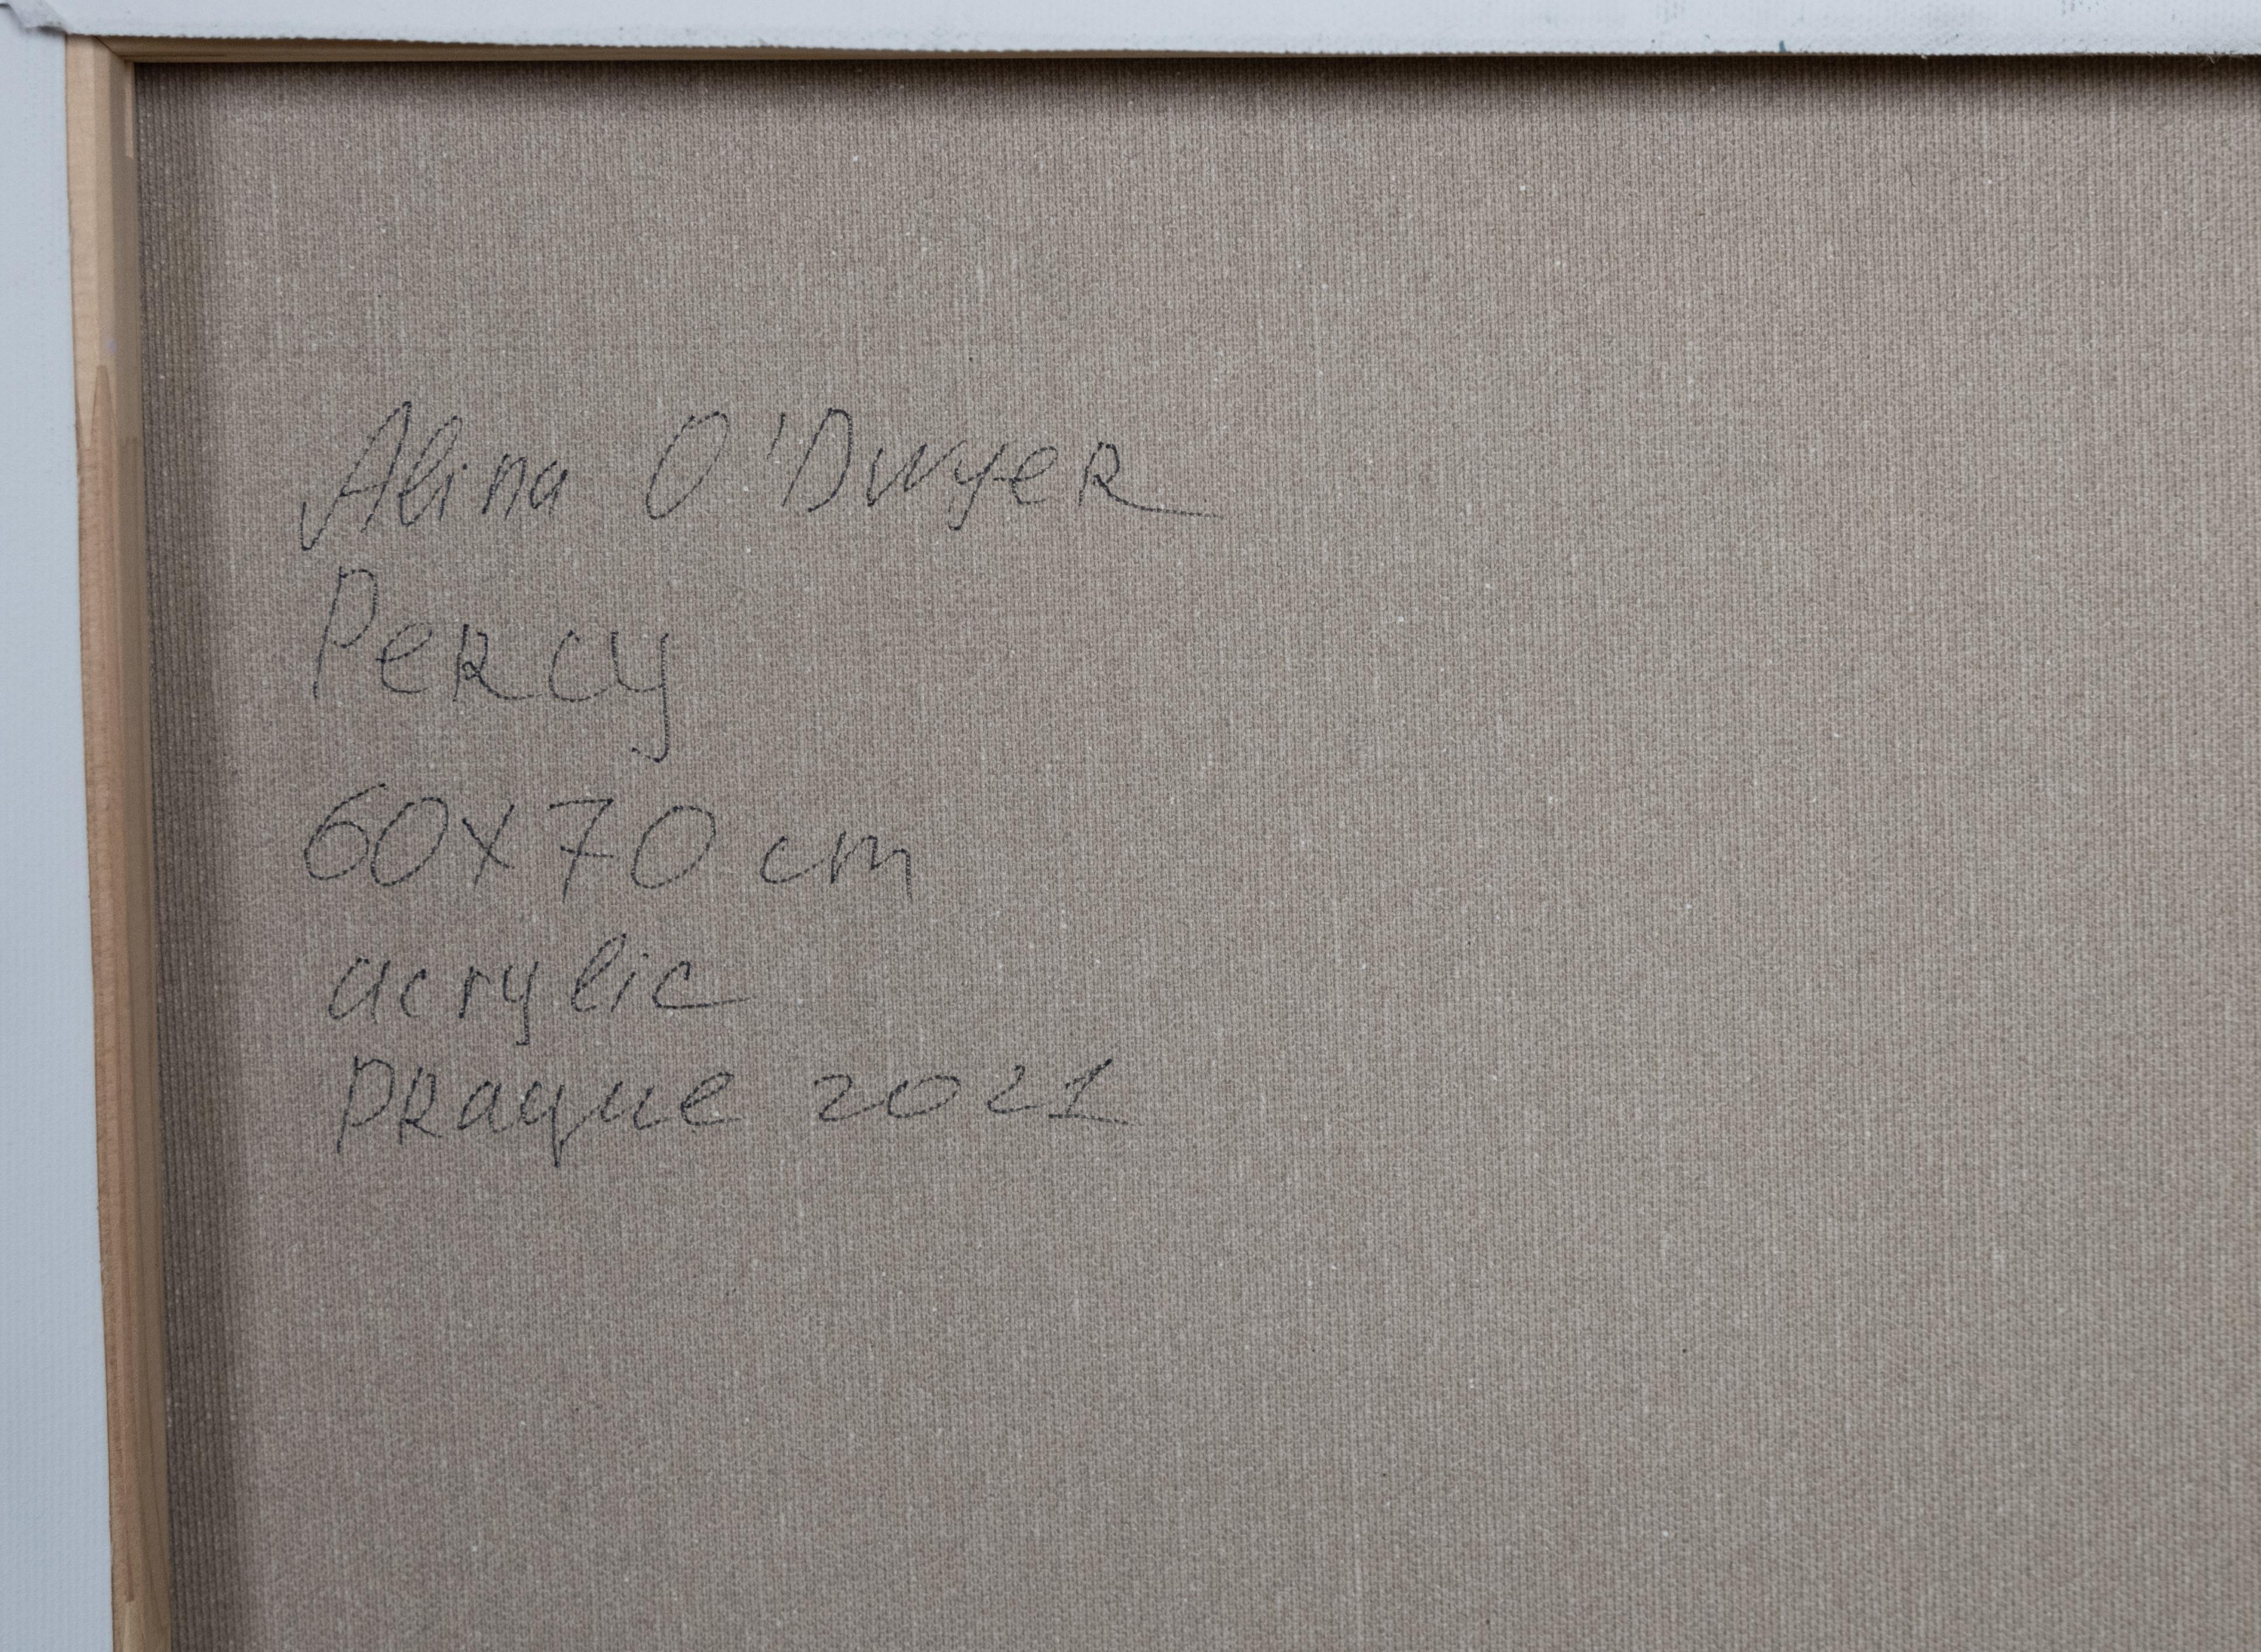 Alina O'Dwyer
Percy
60x70 cm
acrylic
Prague 2021